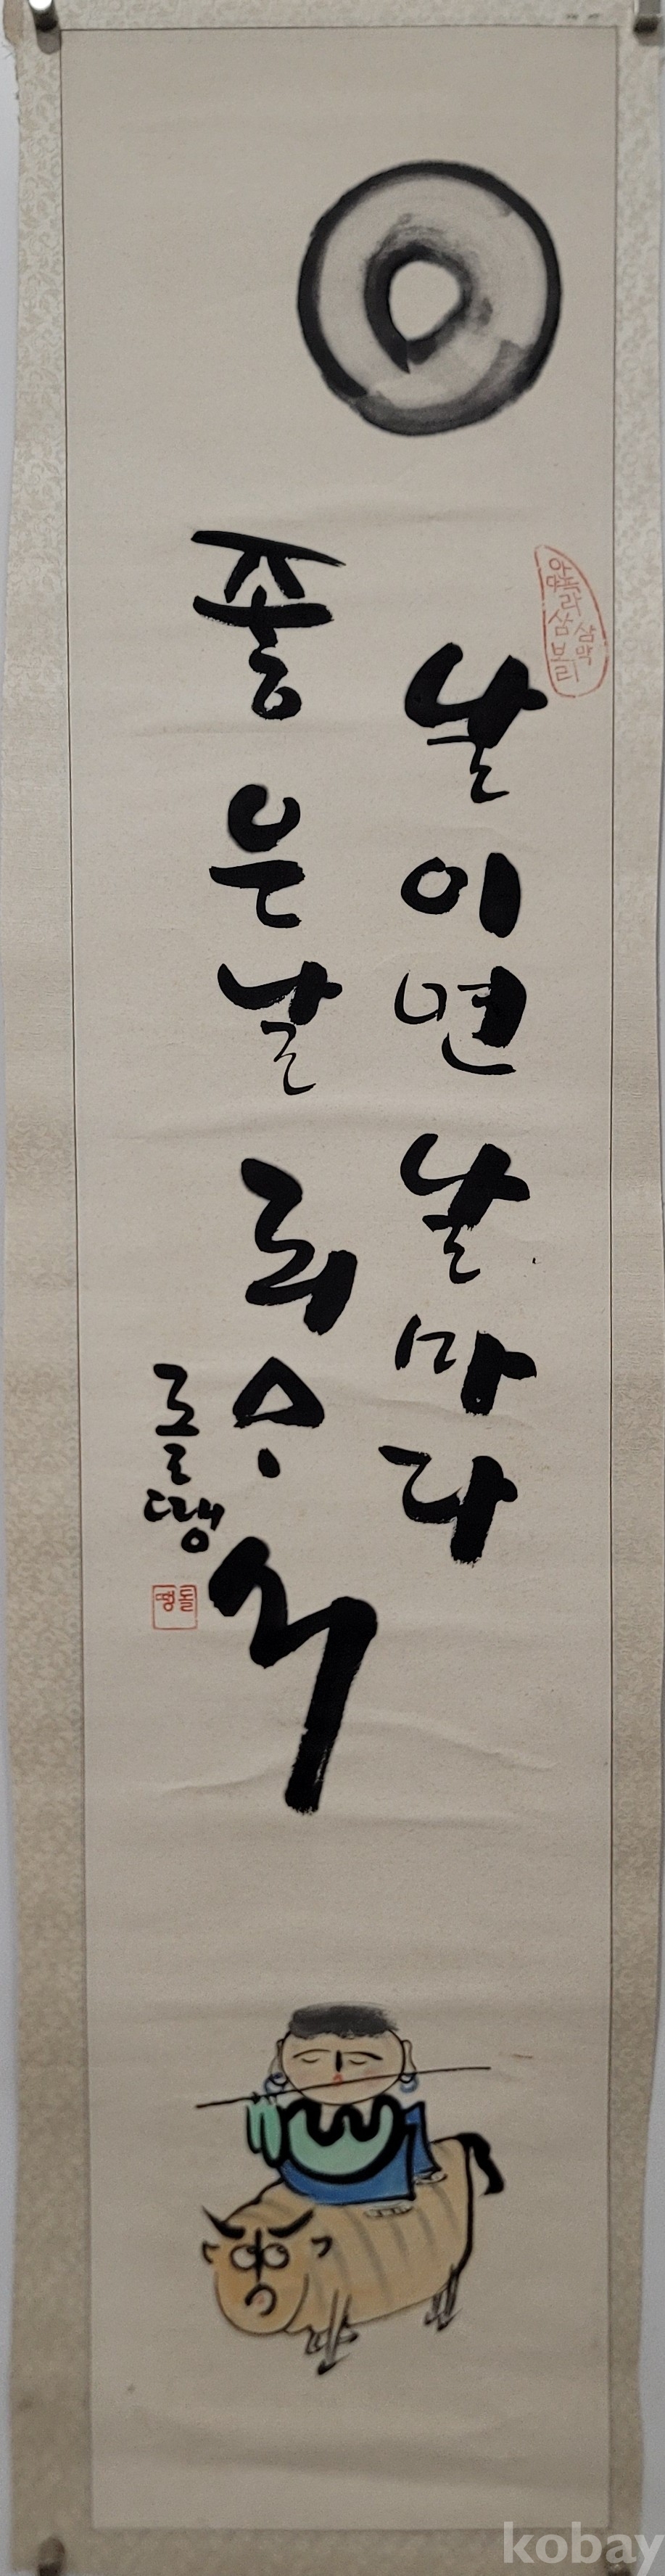 아뇩다라삼먁삼보리
날이면 날마다
좋은날 되소서
돌땡
돌땡
kobay